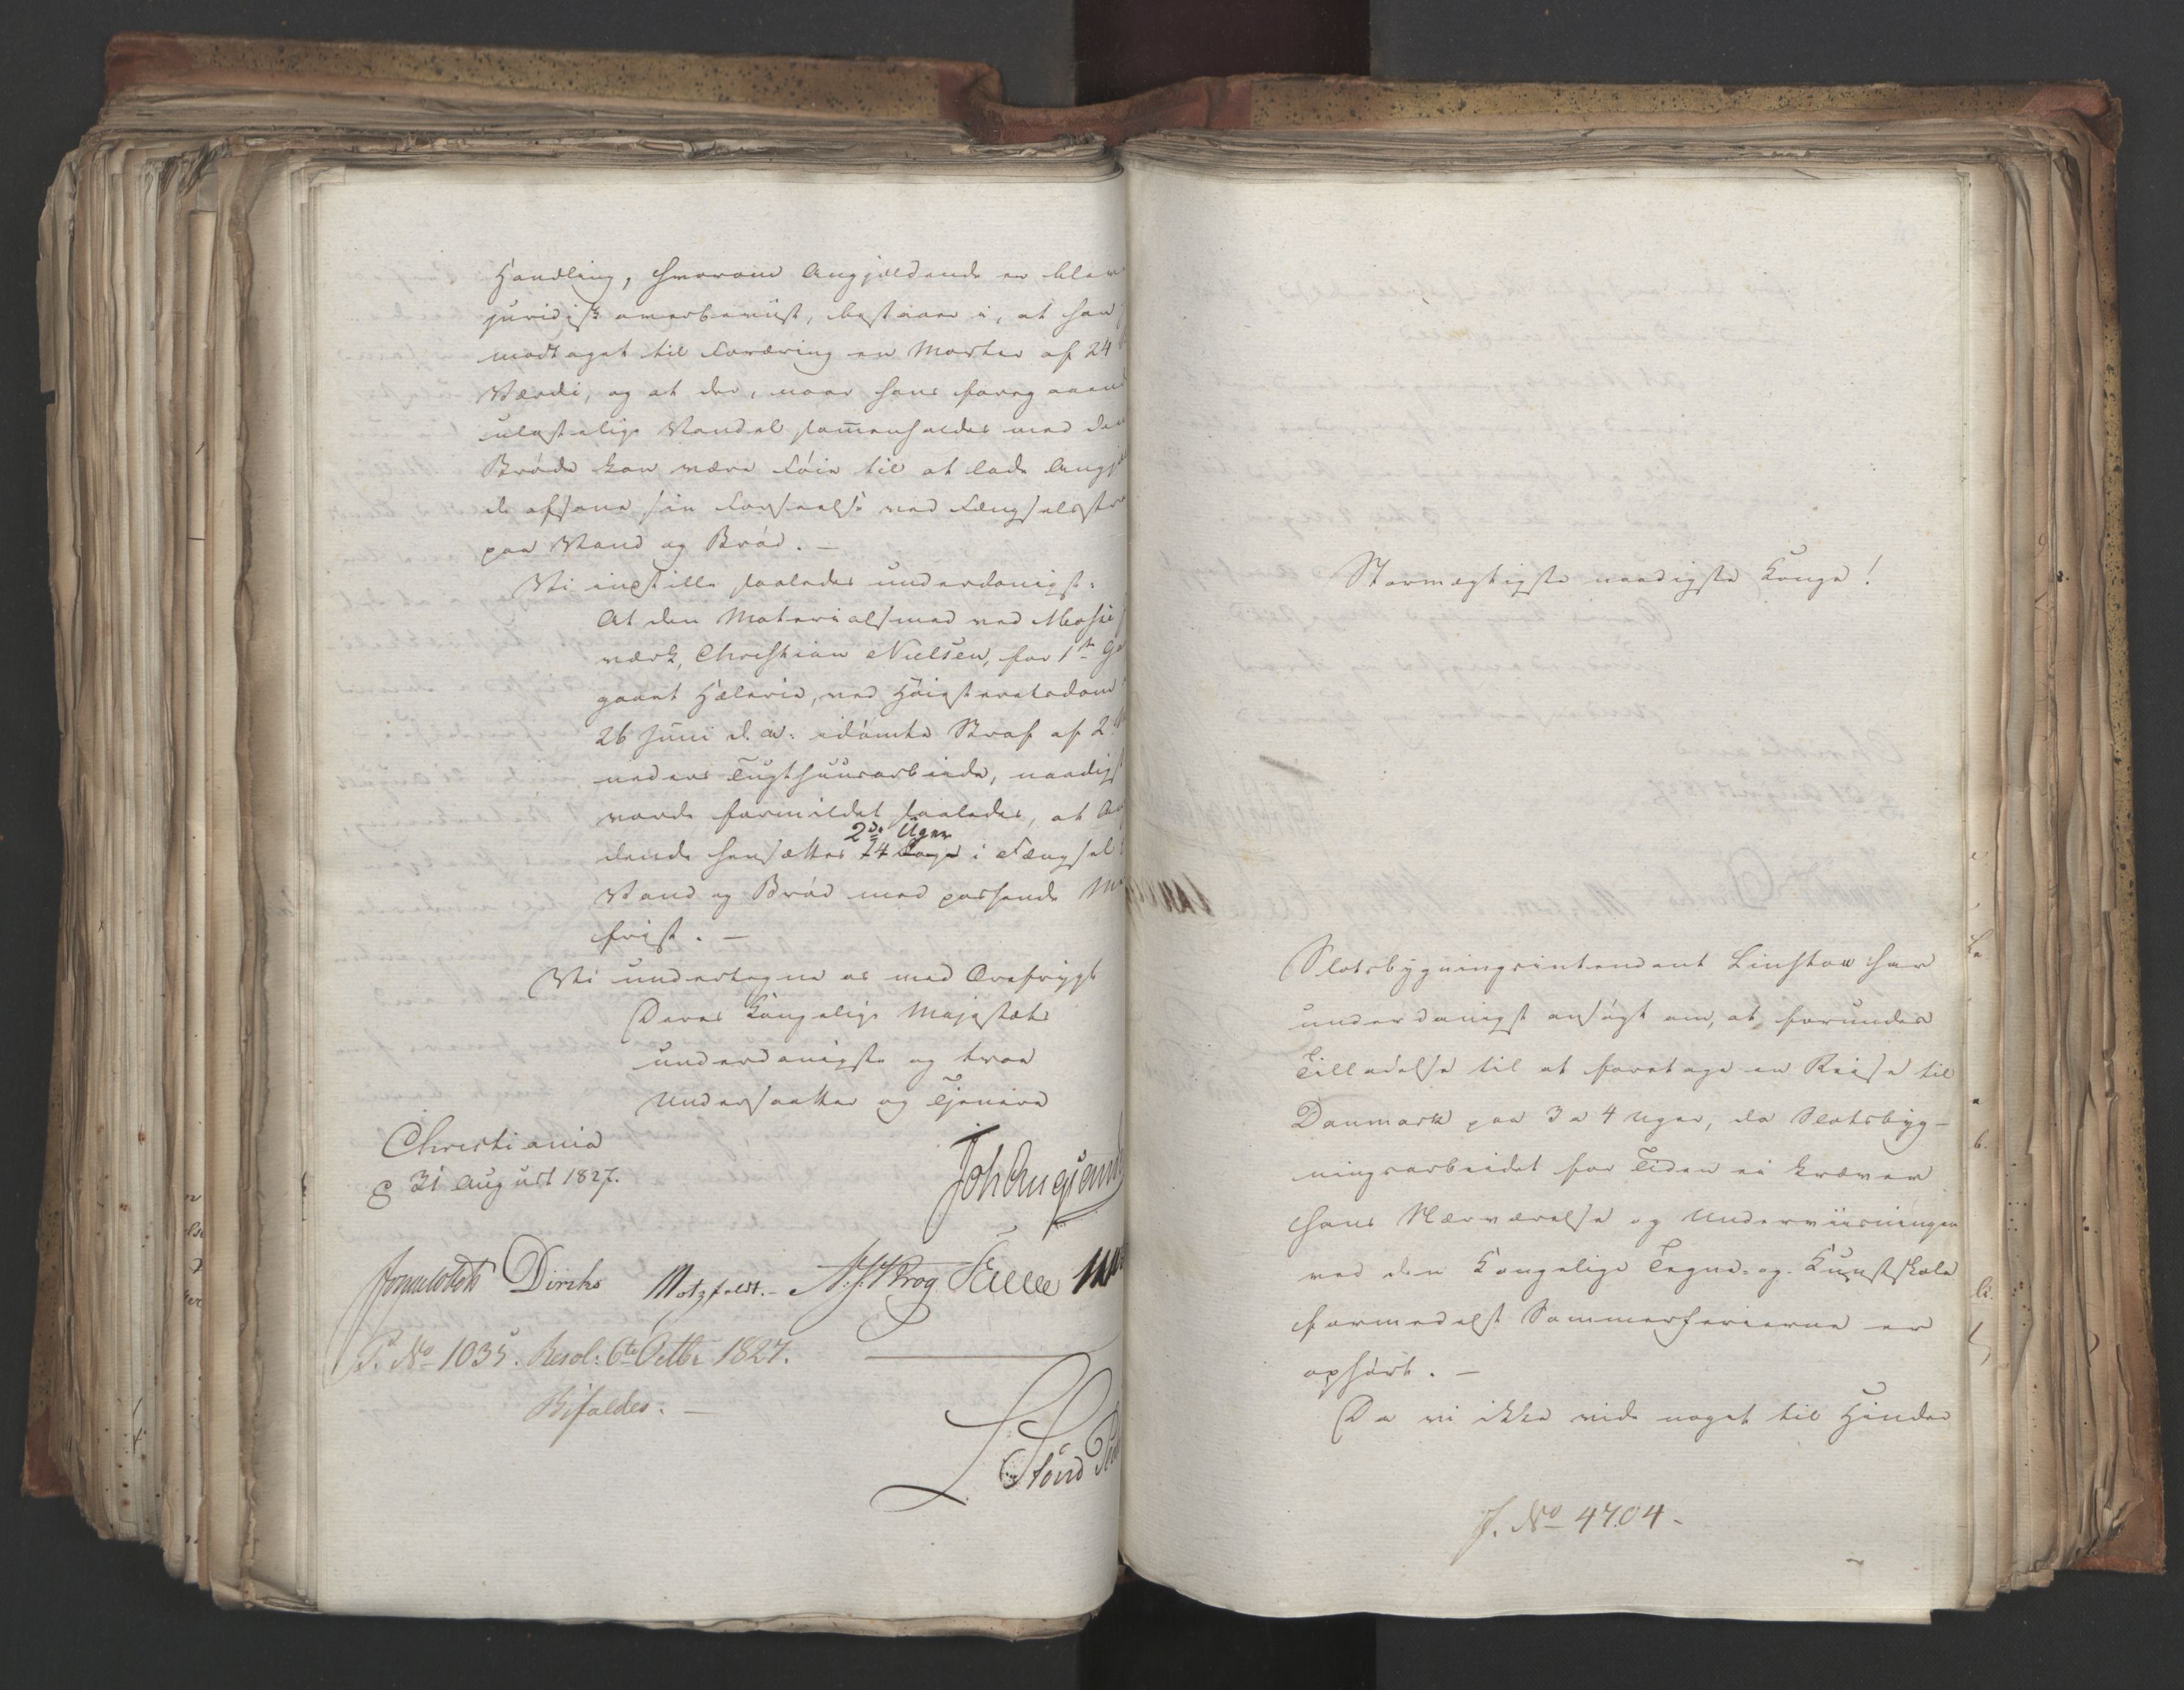 Handling, hvorom Angjældende er blev
juridisk overbeviist, bestaaer i, at han
modtaget til Foræring en Morter af 24
Værdi, og at der, naar hans foregaaend
ulastelige Vandel sammenholdes med den
Brøde kan være Føie til at lade Angjæ
de afsone sin Forseelse ved Fængselsstra
paa Vand og Brød. —
Vi instille saaledes underdanigst:
At den Materialsmed ved
værk, Christian Nielsen, for 1ste Ga
gaaet Hæleri, ved Høiesteretsdom
26 Juni d. A. idømte Straf af 2
neders Tugthuusarbeide, naadigst
vorde formildet saaledes, at An
dende hensættes 14 Dage i Fængsel
2de Uger
Vand og Brød med passende M
frist. —
Vi undertegne os med Ærefrygt
Deres Kongelige Majestæts
underdanigste og troe
Undersaatter og Tjenere
Christiania
d 31 August 1827.
Joh Aug Sand
Diriks Motzfeldt. Krog
P. No 1035. Resol: 6te Octbr 1827.
Bifaldes. —
Stormægtigste naadigste Konge!
Slotsbygningsintendent Linstow har
underdanigst ansøgt om, at forundes
Tilladelse til at foretage en Reise til
Danmark paa 3 a 4 Uger, da Slotsbyg-
ningsarbeidet for Tiden ei kræver
hans Nærværelse og Underviisningen
ved den Kongelige Tegne- og Kunstskole
formedelst Sommerferierne er
ophørt. —
Da vi ikke vide noget til Hinder
J. No 4704.